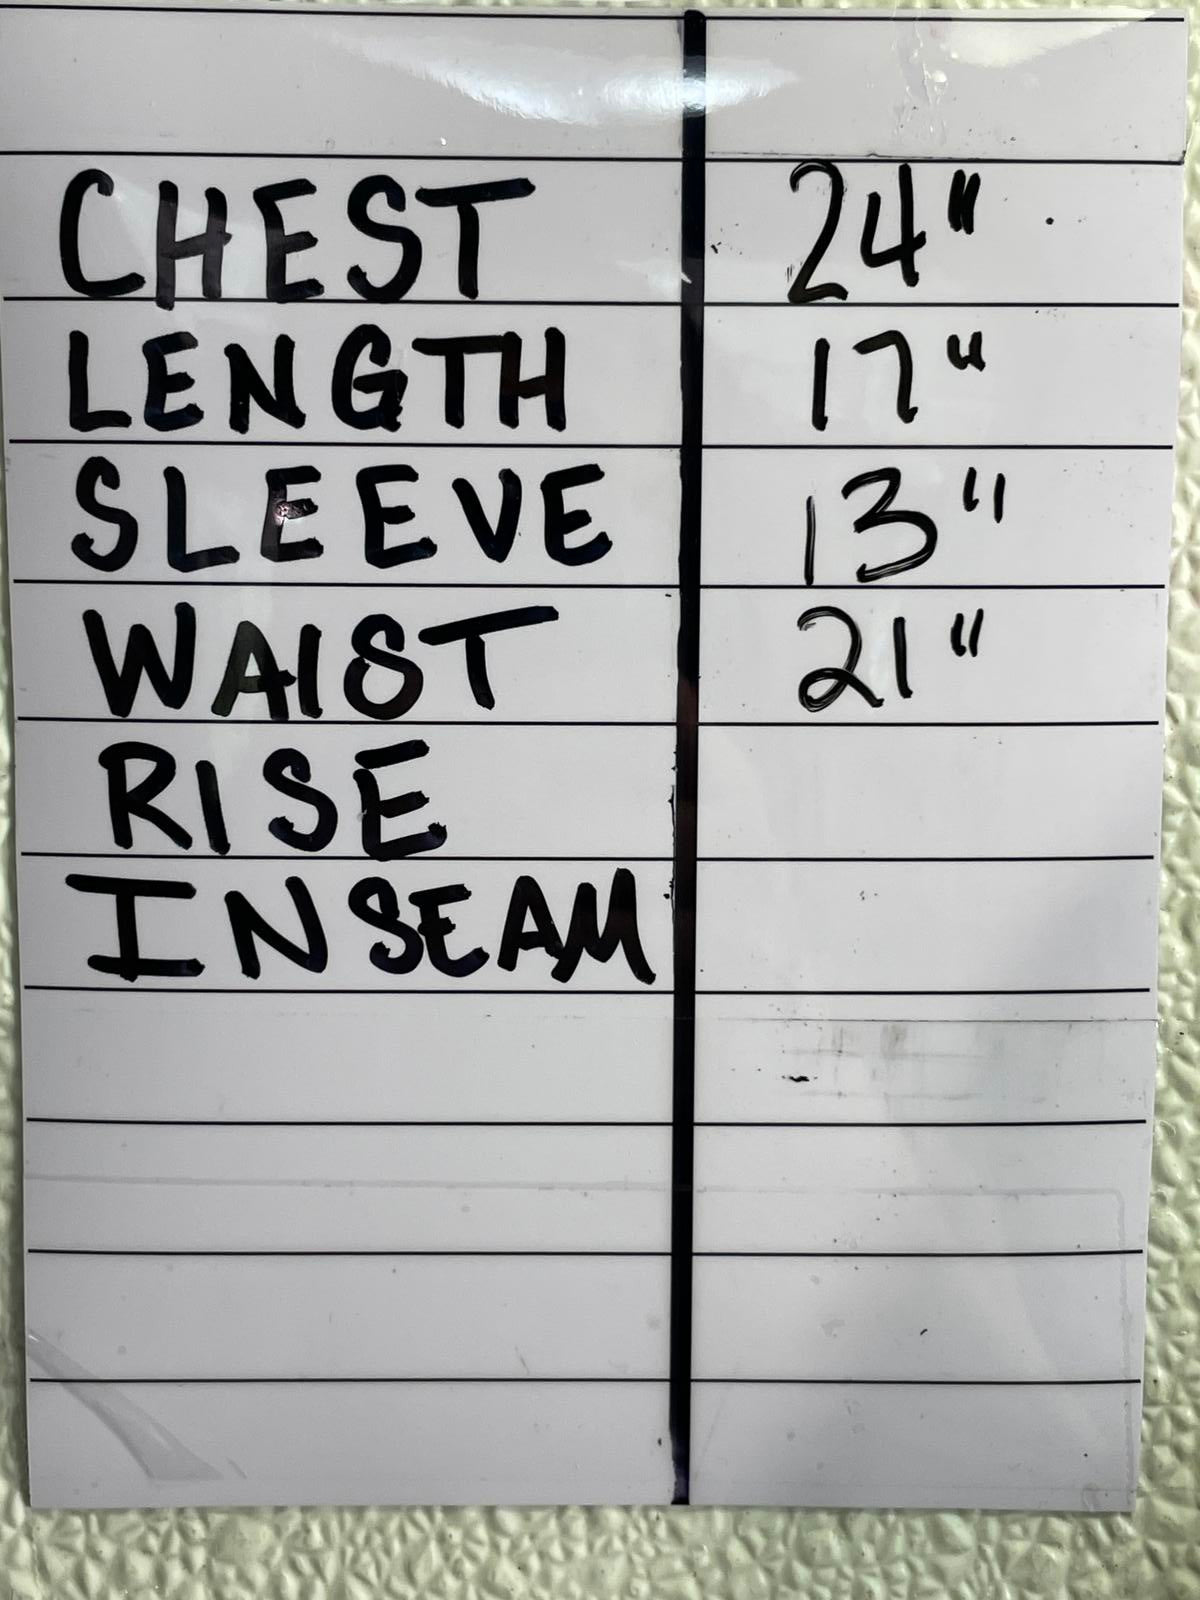 CHEST 24"
LENGTH 17"
SLEEVE 13"
WAIST 21"
RISE
INSEAM